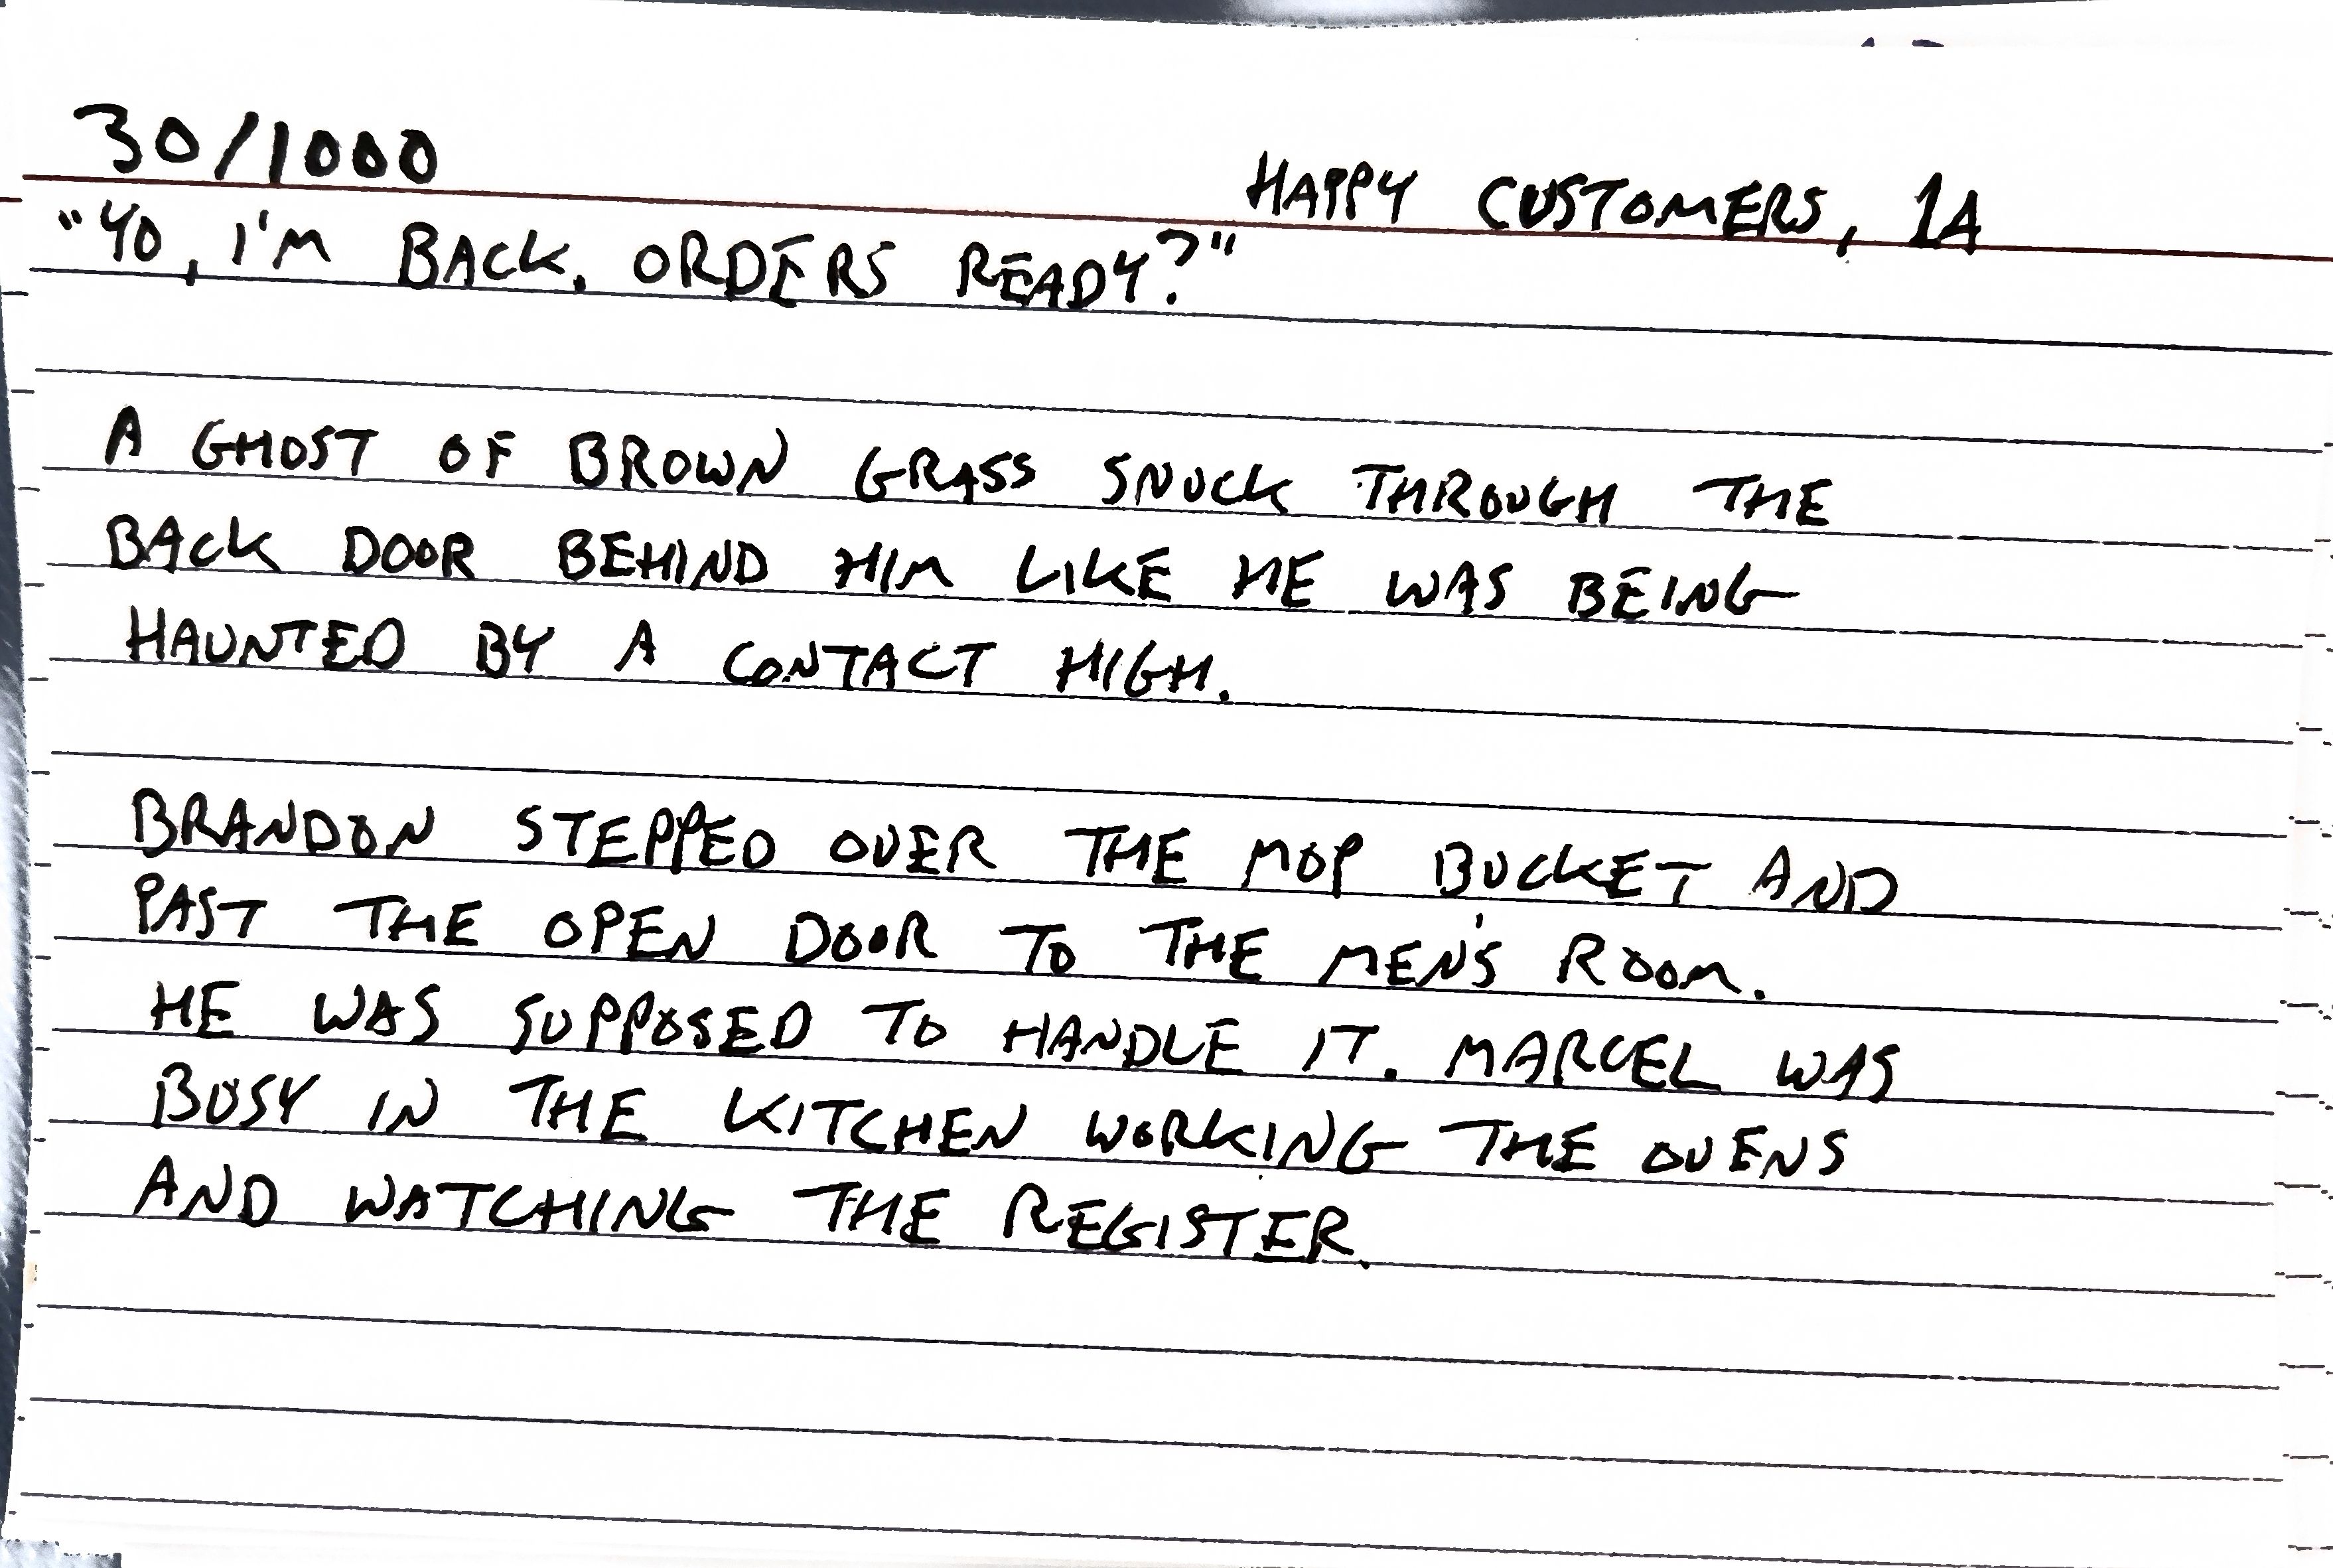 30/1000
HAPPY CUSTOMERS, 1A
"YO, I'M BACK. ORDERS READY?"
A GHOST OF BROWN GRASS SNUCK THROUGH THE
BACK DOOR BEHIND HIM LIKE HE WAS BEING
HAUNTED BY A CONTACT HIGH.
BRANDON STEPPED OVER THE MOP BUCKET AND
PAST THE OPEN DOOR TO THE MEN'S ROOM.
HE WAS SUPPOSED TO HANDLE IT. MARCEL WAS
BUSY IN THE KITCHEN WORKING THE OVENS
AND WATCHING THE REGISTER.